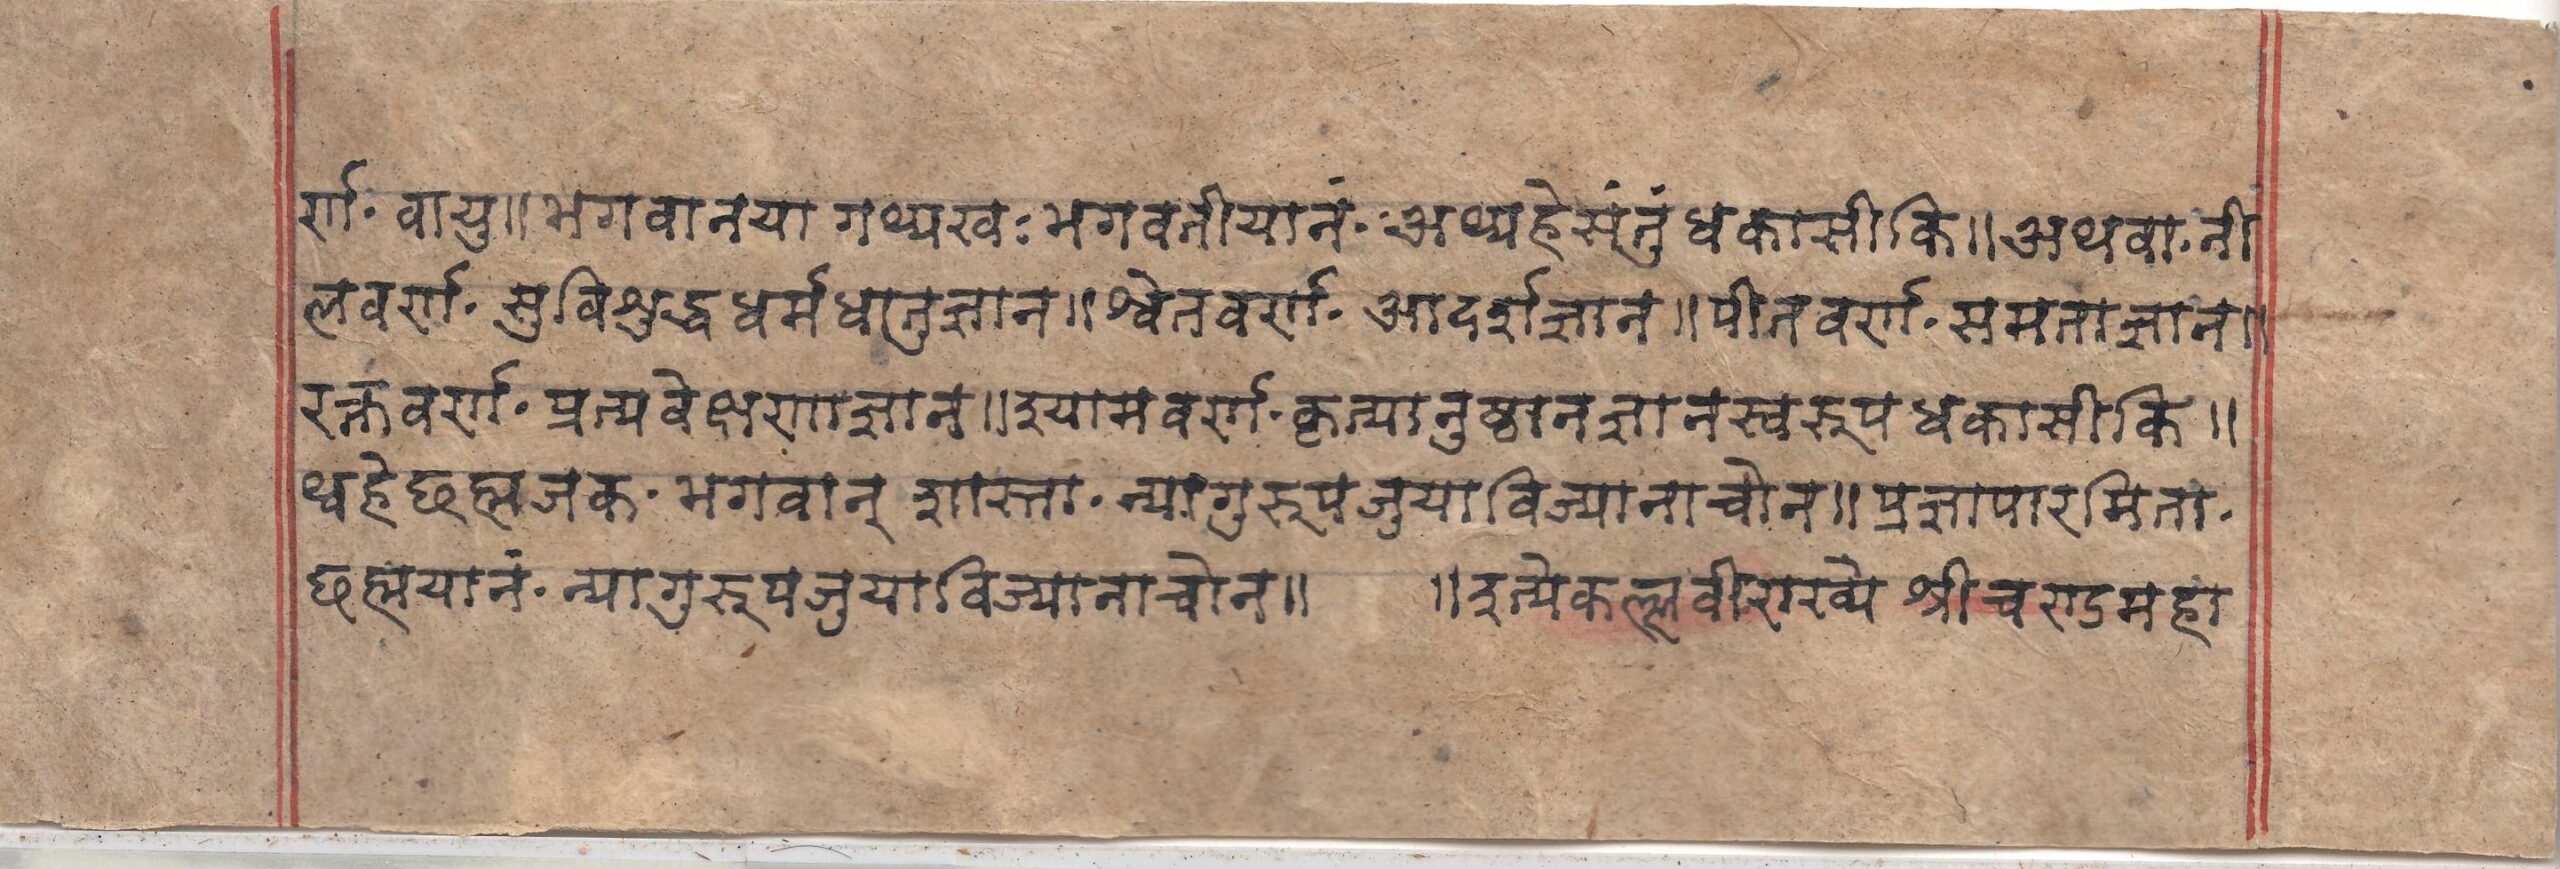 र्ण· वायु॥भगवानया गथ्यखः भगवतीयानं· अथ्यहेसंतुं धकासीकि॥अथवा·नी
लवर्ण· सुविशुद्धधर्मधातुज्ञान॥श्वेतवर्ण· आदर्शज्ञान॥पीतवर्ण· समताज्ञान॥
रक्तवर्ण· प्रत्यवेक्षणाज्ञान॥श्यामवर्ण·कृत्यानुष्ठानज्ञानस्वरूप धकासीकि॥
थ्वहेछह्मजक· भगवान् शास्ता· न्यागुरूपजुयाविज्यानाचोन॥प्रज्ञापारमिता·
छह्मयानं· न्यागुरूपजुयाविज्यानाचोन॥ ॥इत्येकल्लवीराख्ये श्रीचण्डमहा